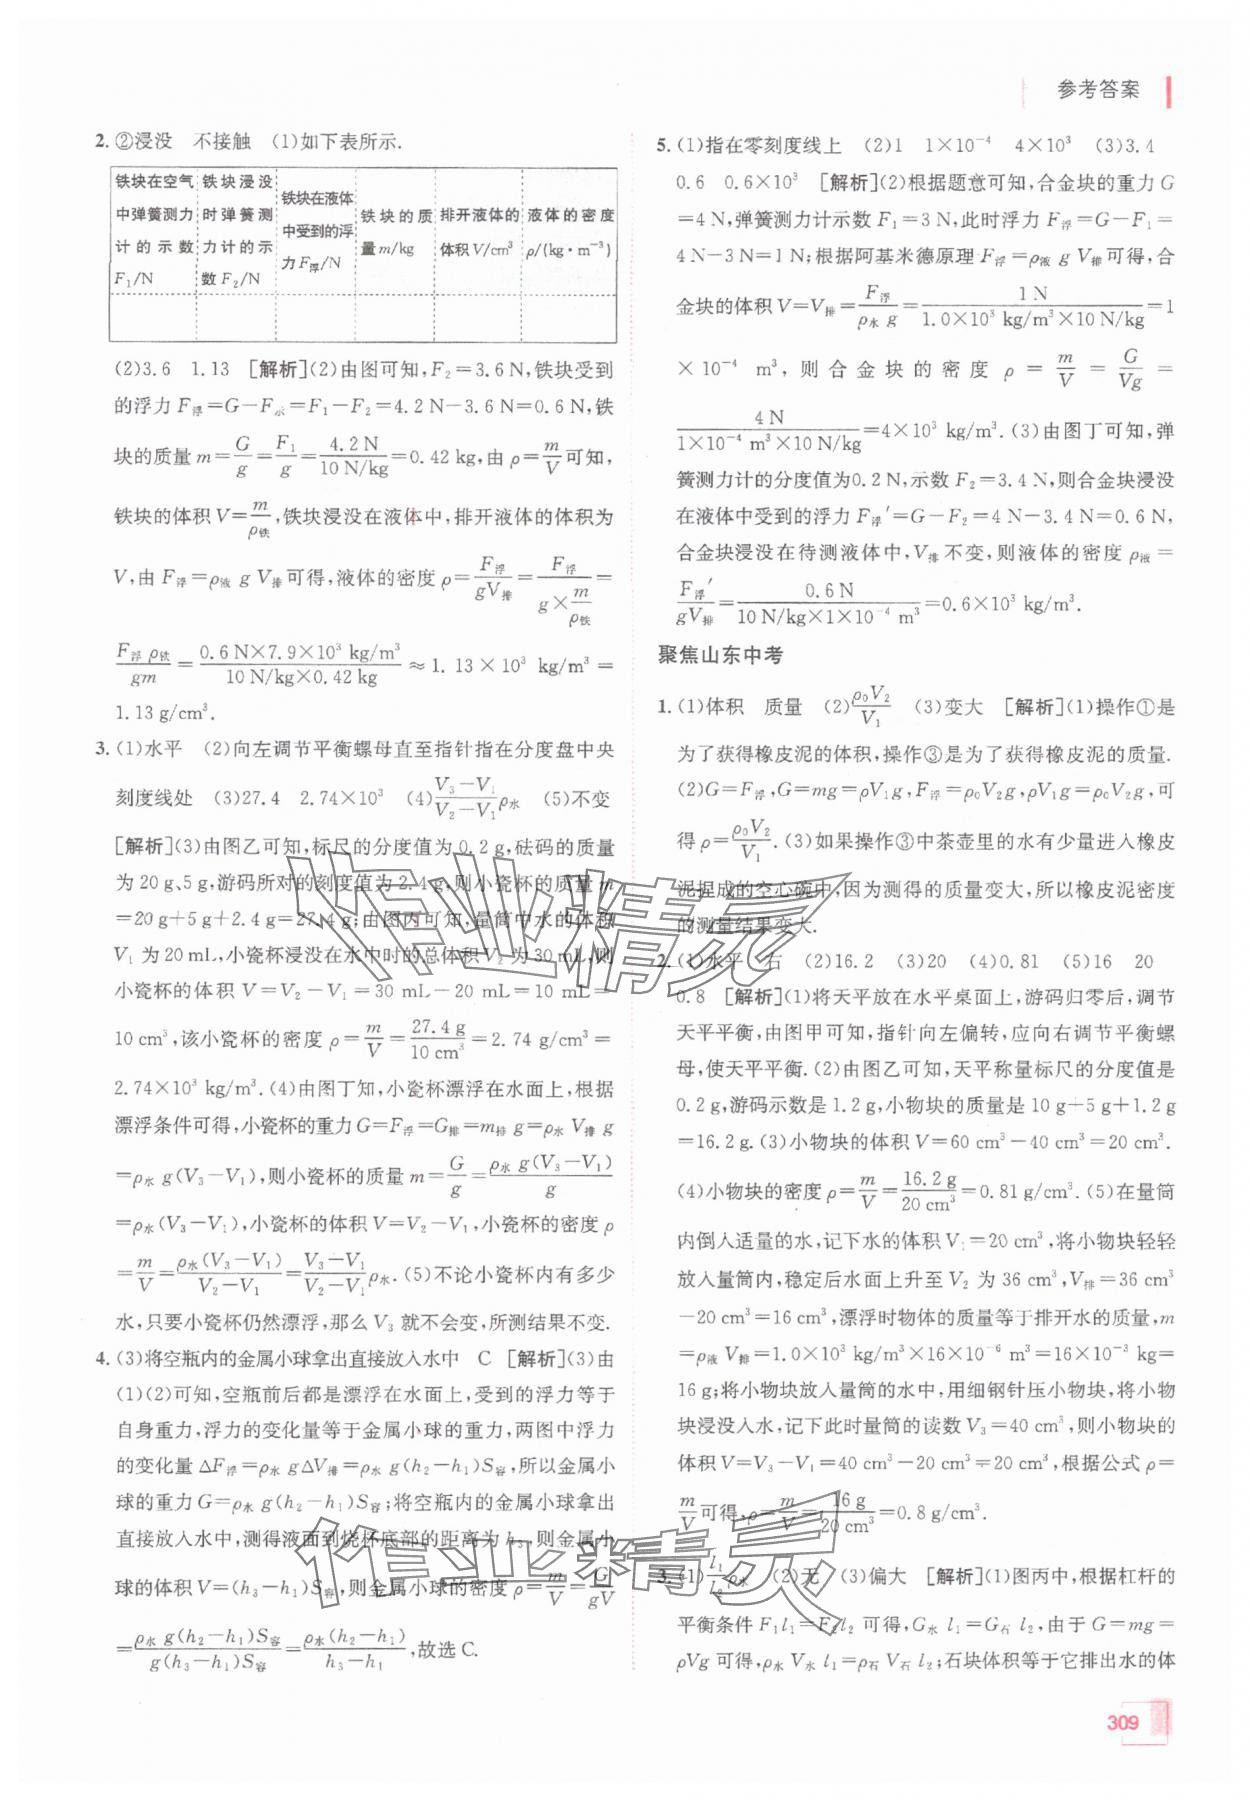 参考答案
2. ②浸没　不接触　(1)如下表所示.
铁块在空气中弹簧测力计的示数F₁/N | 铁块浸没时弹簧测力计的示数F₂/N | 铁块在液体中受到的浮力F浮/N | 铁块的质量m/kg | 排开液体的体积V/cm³ | 液体的密度ρ/(kg·m⁻³)
(2)3.6　1.13　[解析](2)由图可知,F₂=3.6 N,铁块受到
的浮力F浮=G-F示=F₁-F₂=4.2 N-3.6 N=0.6 N,铁
块的质量m=G/g=F₁/g=4.2 N/10 N/kg=0.42 kg,由ρ=m/V可知,
铁块的体积V=m/ρ铁,铁块浸没在液体中,排开液体的体积为
V,由F浮=ρ液 g V排可得,液体的密度ρ=F浮/gV排=F浮/(g×m/ρ铁)=
F浮 ρ铁/gm=0.6 N×7.9×10³ kg/m³/10 N/kg×0.42 kg≈1.13×10³ kg/m³=
1.13 g/cm³.
3. (1)水平　(2)向左调节平衡螺母直至指针指在分度盘中央
刻度线处　(3)27.4　2.74×10³　(4)(V₃-V₁)/(V₂-V₁)ρ水　(5)不变
[解析](3)由图乙可知,标尺的分度值为0.2 g,砝码的质量
为20 g、5 g,游码所对的刻度值为2.4 g,则小瓷杯的质量m
=20 g+5 g+2.4 g=27.4 g;由图丙可知,量筒中水的体积
V₁为20 mL,小瓷杯浸没在水中时的总体积V₂为30 mL,则
小瓷杯的体积V=V₂-V₁=30 mL-20 mL=10 mL=
10 cm³,该小瓷杯的密度ρ=m/V=27.4 g/10 cm³=2.74 g/cm³=
2.74×10³ kg/m³.(4)由图丁知,小瓷杯漂浮在水面上,根据
漂浮条件可得,小瓷杯的重力G=F浮=G排=m排 g=ρ水 V排 g
=ρ水 g(V₃-V₁),则小瓷杯的质量m=G/g=ρ水 g(V₃-V₁)/g
=ρ水(V₃-V₁),小瓷杯的体积V=V₂-V₁,小瓷杯的密度ρ
=m/V=ρ水(V₃-V₁)/(V₂-V₁)=(V₃-V₁)/(V₂-V₁)ρ水.(5)不论小瓷杯内有多少
水,只要小瓷杯仍然漂浮,那么V₃就不会变,所测结果不变.
4. (3)将空瓶内的金属小球拿出直接放入水中　C　[解析](3)由
(1)(2)可知,空瓶前后都是漂浮在水面上,受到的浮力等于
自身重力,浮力的变化量等于金属小球的重力,两图中浮力
的变化量ΔF浮=ρ水 gΔV排=ρ水 g(h₂-h₁)S容,所以金属小
球的重力G=ρ水 g(h₂-h₁)S容;将空瓶内的金属小球拿出
直接放入水中,测得液面到烧杯底部的距离为h₃,则金属小
球的体积V=(h₃-h₁)S容,则金属小球的密度ρ=m/V=G/gV
=ρ水 g(h₂-h₁)S容/g(h₃-h₁)S容=ρ水(h₂-h₁)/(h₃-h₁),故选C.
5. (1)指在零刻度线上　(2)1　1×10⁻⁴　4×10³　(3)3.4
0.6　0.6×10³　[解析](2)根据题意可知,合金块的重力G
=4 N,弹簧测力计示数F₁=3 N,此时浮力F浮=G-F₁=
4 N-3 N=1 N;根据阿基米德原理F浮=ρ液 g V排可得,合
金块的体积V=V排=F浮/ρ水 g=1 N/1.0×10³ kg/m³×10 N/kg=1
×10⁻⁴ m³,则合金块的密度ρ=m/V=G/Vg=
4 N/1×10⁻⁴ m³×10 N/kg=4×10³ kg/m³.(3)由图丁可知,弹
簧测力计的分度值为0.2 N,示数F₂=3.4 N,则合金块浸没
在液体中受到的浮力F浮′=G-F₂=4 N-3.4 N=0.6 N,
合金块浸没在待测液体中,V排不变,则液体的密度ρ液=
F浮′/gV排=0.6 N/10 N/kg×1×10⁻⁴ m³=0.6×10³ kg/m³.
聚焦山东中考
1. (1)体积　质量　(2)ρ₀V₂/V₁　(3)变大　[解析](1)操作①是
为了获得橡皮泥的体积,操作③是为了获得橡皮泥的质量.
(2)G=F浮,G=mg=ρV₁g,F浮=ρ₀V₂g,ρV₁g=ρ₀V₂g,可
得ρ=ρ₀V₂/V₁.(3)如果操作③中茶壶里的水有少量进入橡皮
泥捏成的空心碗中,因为测得的质量变大,所以橡皮泥密度
的测量结果变大.
2. (1)水平　右　(2)16.2　(3)20　(4)0.81　(5)16　20
0.8　[解析](1)将天平放在水平桌面上,游码归零后,调节
天平平衡,由图甲可知,指针向左偏转,应向右调节平衡螺
母,使天平平衡.(2)由图乙可知,天平称量标尺的分度值是
0.2 g,游码示数是1.2 g,小物块的质量是10 g+5 g+1.2 g
=16.2 g.(3)小物块的体积V=60 cm³-40 cm³=20 cm³.
(4)小物块的密度ρ=m/V=16.2 g/20 cm³=0.81 g/cm³.(5)在量筒
内倒入适量的水,记下水的体积V₁=20 cm³,将小物块轻轻
放入量筒内,稳定后水面上升至V₂为36 cm³,V排=36 cm³
-20 cm³=16 cm³,漂浮时物体的质量等于排开水的质量,m
=ρ液 V排=1.0×10³ kg/m³×16×10⁻⁶ m³=16×10⁻³ kg=
16 g;将小物块放入量筒的水中,用细钢针压小物块,将小物
块浸没入水,记下此时量筒的读数V₃=40 cm³,则小物块的
体积V=V₃-V₁=40 cm³-20 cm³=20 cm³,根据公式ρ=
m/V可得,ρ=m/V=16 g/20 cm³=0.8 g/cm³.
3. (1)l₁/l₂ρ水　(2)无　(3)偏大　[解析](1)图丙中,根据杠杆的
平衡条件F₁l₁=F₂l₂可得,G水 l₁=G石 l₂,由于G=mg=
ρVg可得,ρ水 V水 l₁=ρ石 V石 l₂;石块体积等于它排出水的体
309
作业精灵
作业精灵